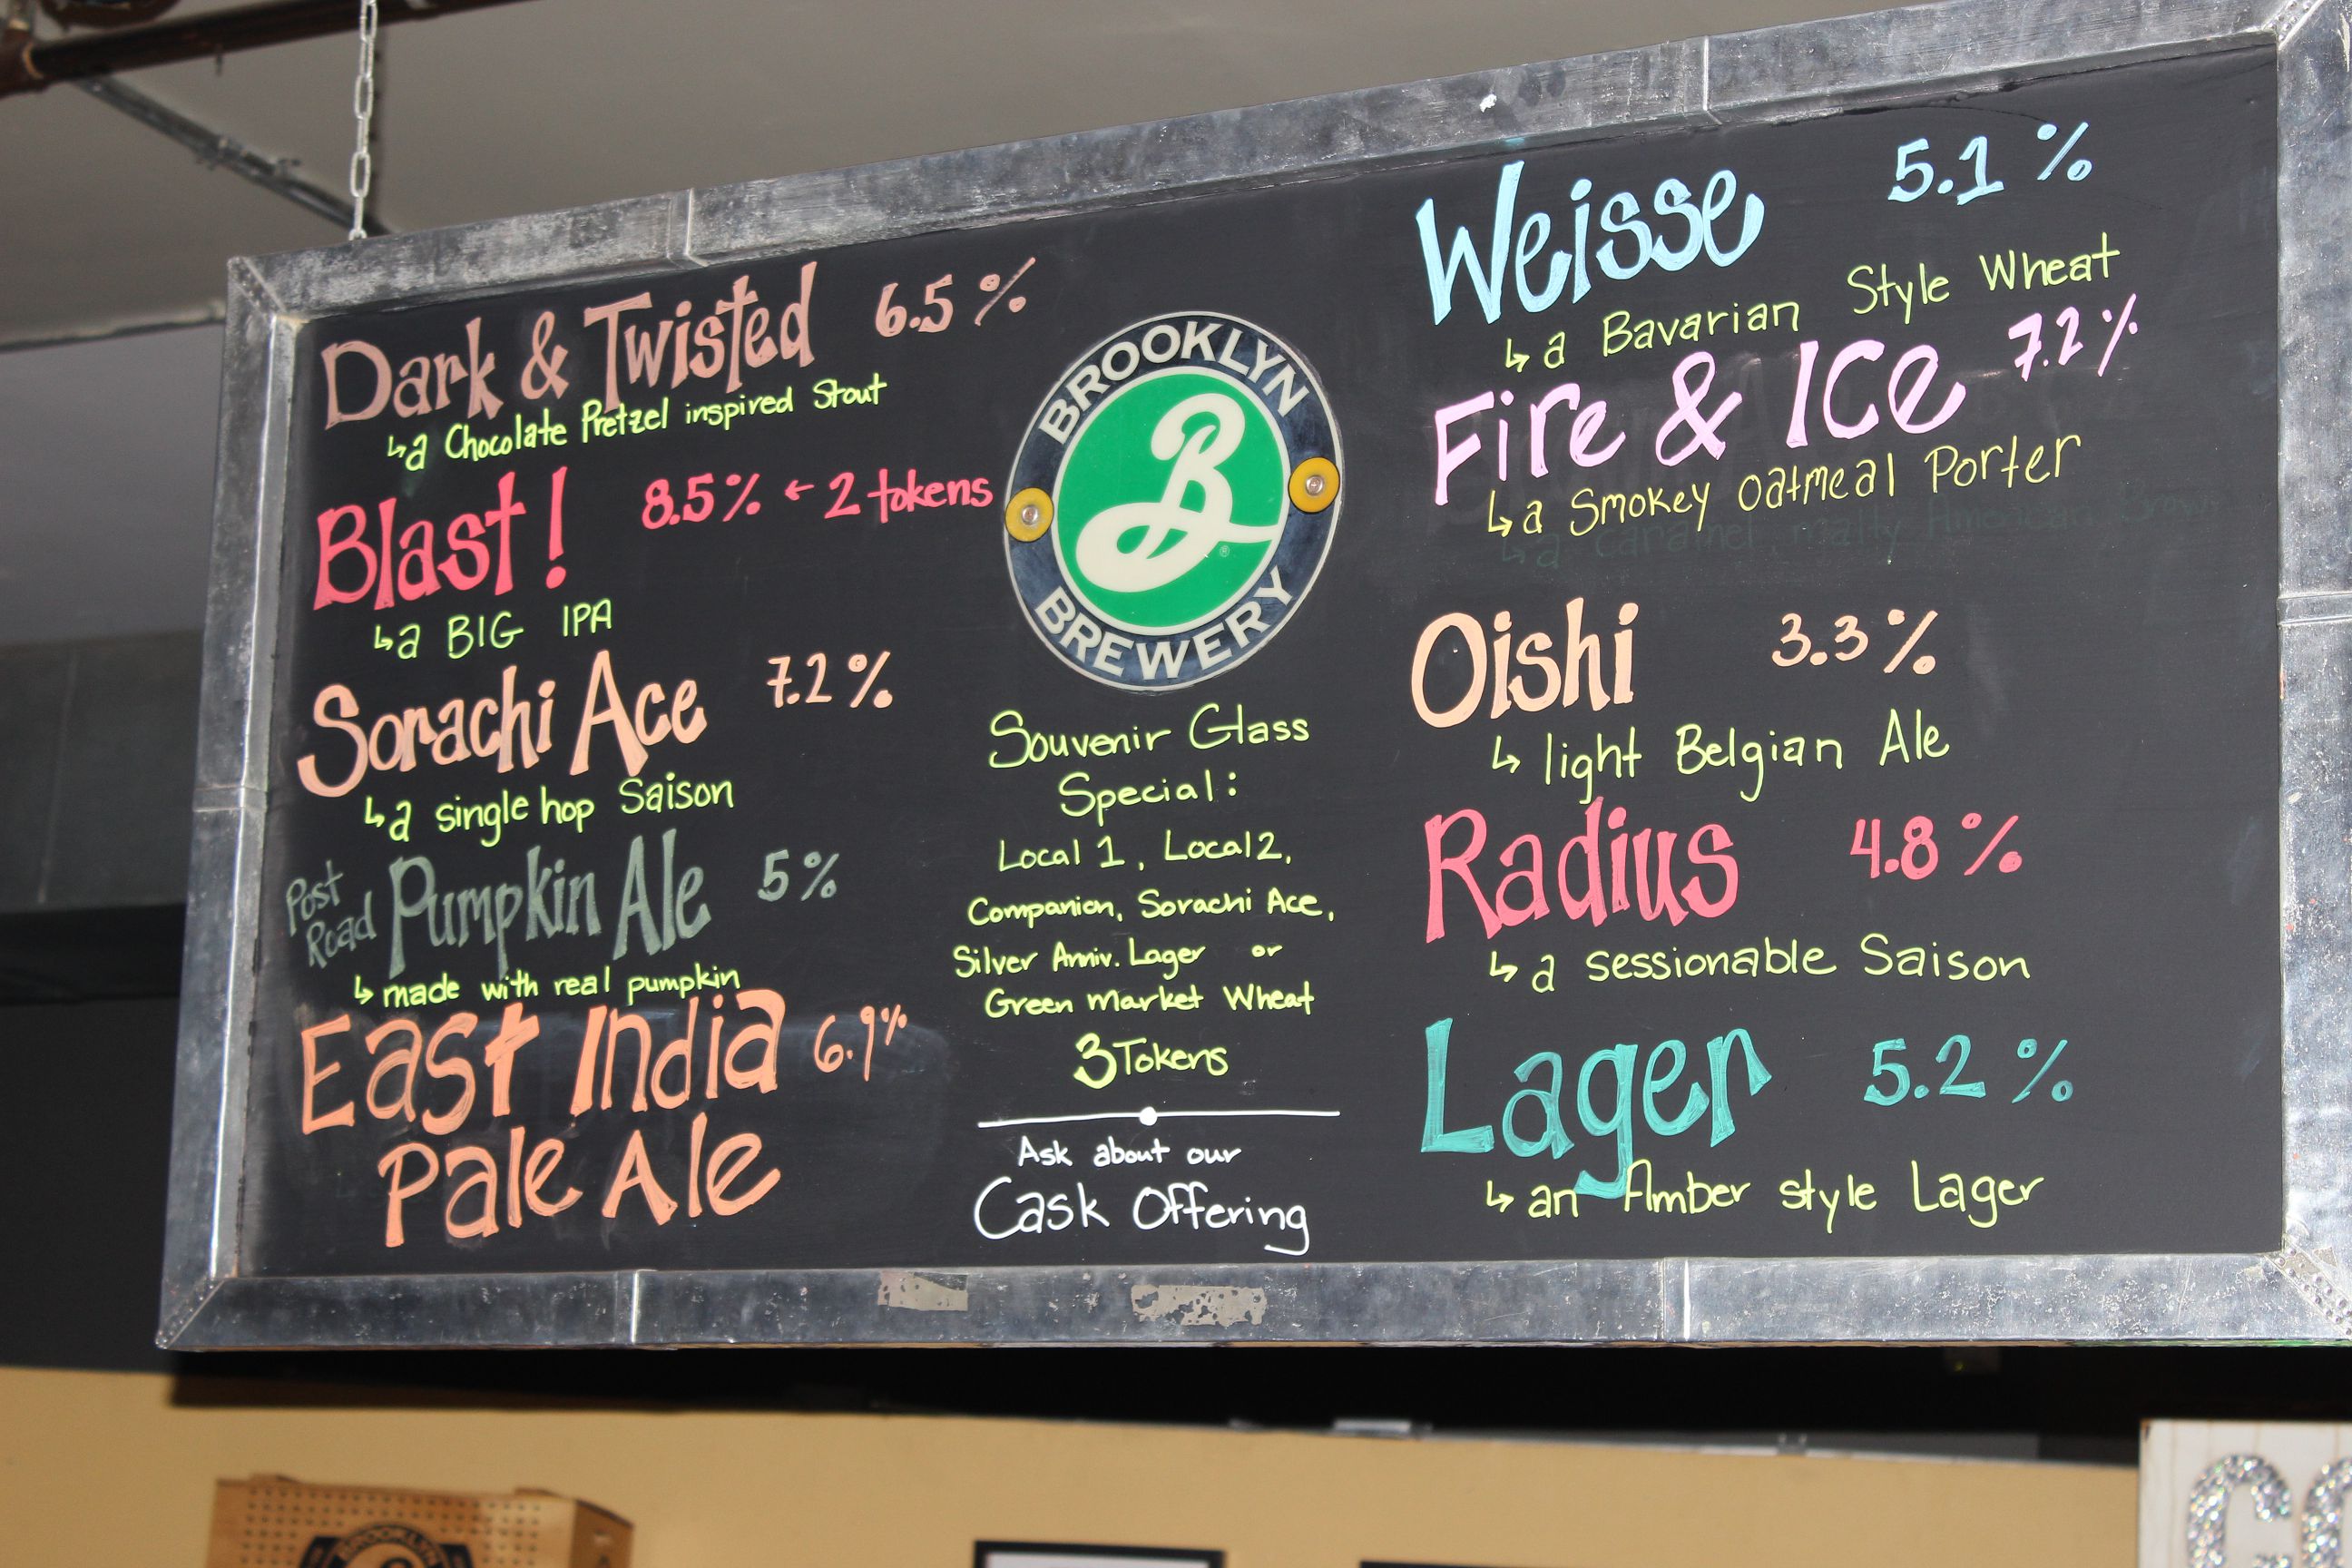 Dark & Twisted 6.5%
↳a Chocolate Pretzel inspired Stout
Blast! 8.5% ← 2 tokens
↳a BIG IPA
Sorachi Ace 7.2%
↳a single hop Saison
Post Road Pumpkin Ale 5%
↳made with real pumpkin
East India 6.9%
Pale Ale
BROOKLYN
B
BREWERY
Souvenir Glass
Special:
Local 1, Local 2,
Companion, Sorachi Ace,
Silver Anniv. Lager or
Green Market Wheat
3 Tokens
Ask about our
Cask Offering
Weisse 5.1%
↳a Bavarian Style Wheat
Fire & ICe 7.2%
↳a Smokey Oatmeal Porter
↳a caramel, malty American
Oishi 3.3%
↳light Belgian Ale
Radius 4.8%
↳a sessionable Saison
Lager 5.2%
↳an Amber style Lager
BROOKLYN